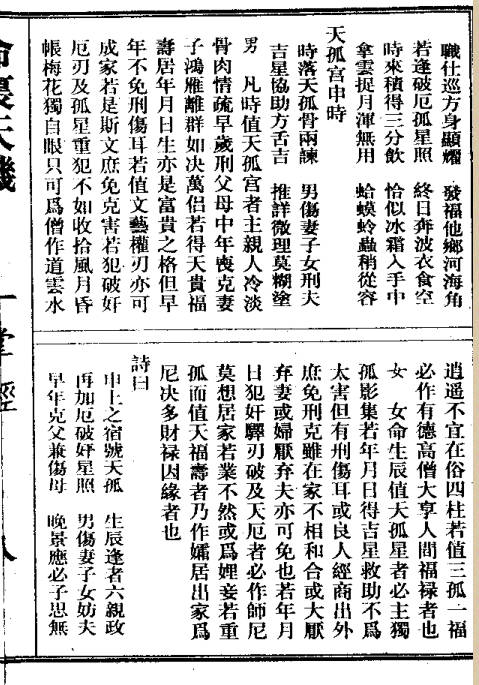 職仕巡方身顯耀　發福他鄉河海角
若逢破厄孤星照　終日奔波衣食空
時來積得三分飲　恰似冰霜入手中
拿雲捉月渾無用　蛤蟆蛉蟲稍從容
天孤宫申時
時落天孤骨兩諫　男傷妻子女刑夫
吉星協助方舌吉　推詳微理莫糊塗
男　凡時值天孤宫者主親人冷淡
骨肉情疏早歲刑父母中年喪克妻
子鴻雁離群如决萬侣若得天貴福
壽居年月日生亦是富貴之格但早
年不免刑傷耳若值文藝權刃亦可
成家若是斯文庶免克害若犯破奸
厄刃及孤星重犯不如收拾風月昏
帳梅花獨自眼只可爲僧作道雲水
逍遥不宜在俗四柱若值三孤一福
必作有德高僧大享人間福禄者也
女　女命生辰值天孤星者必主獨
孤影集若年月日得吉星救助不爲
太害但有刑傷耳或良人經商出外
庶免刑克雖在家不相和合或大厭
弃妻或婦厭弃夫亦可免也若年月
日犯奸驛刃破及天厄者必作師尼
莫想居家若業不然或爲娌妾若重
孤而值天福壽者乃作孀居出家爲
尼决多財禄因緣者也
詩曰
申上之宿號天孤　生辰逢者六親政
再加厄破奸星照　男傷妻子女妨夫
早年克父兼傷母　晚景應必子思無
命裏天機　一掌經　八